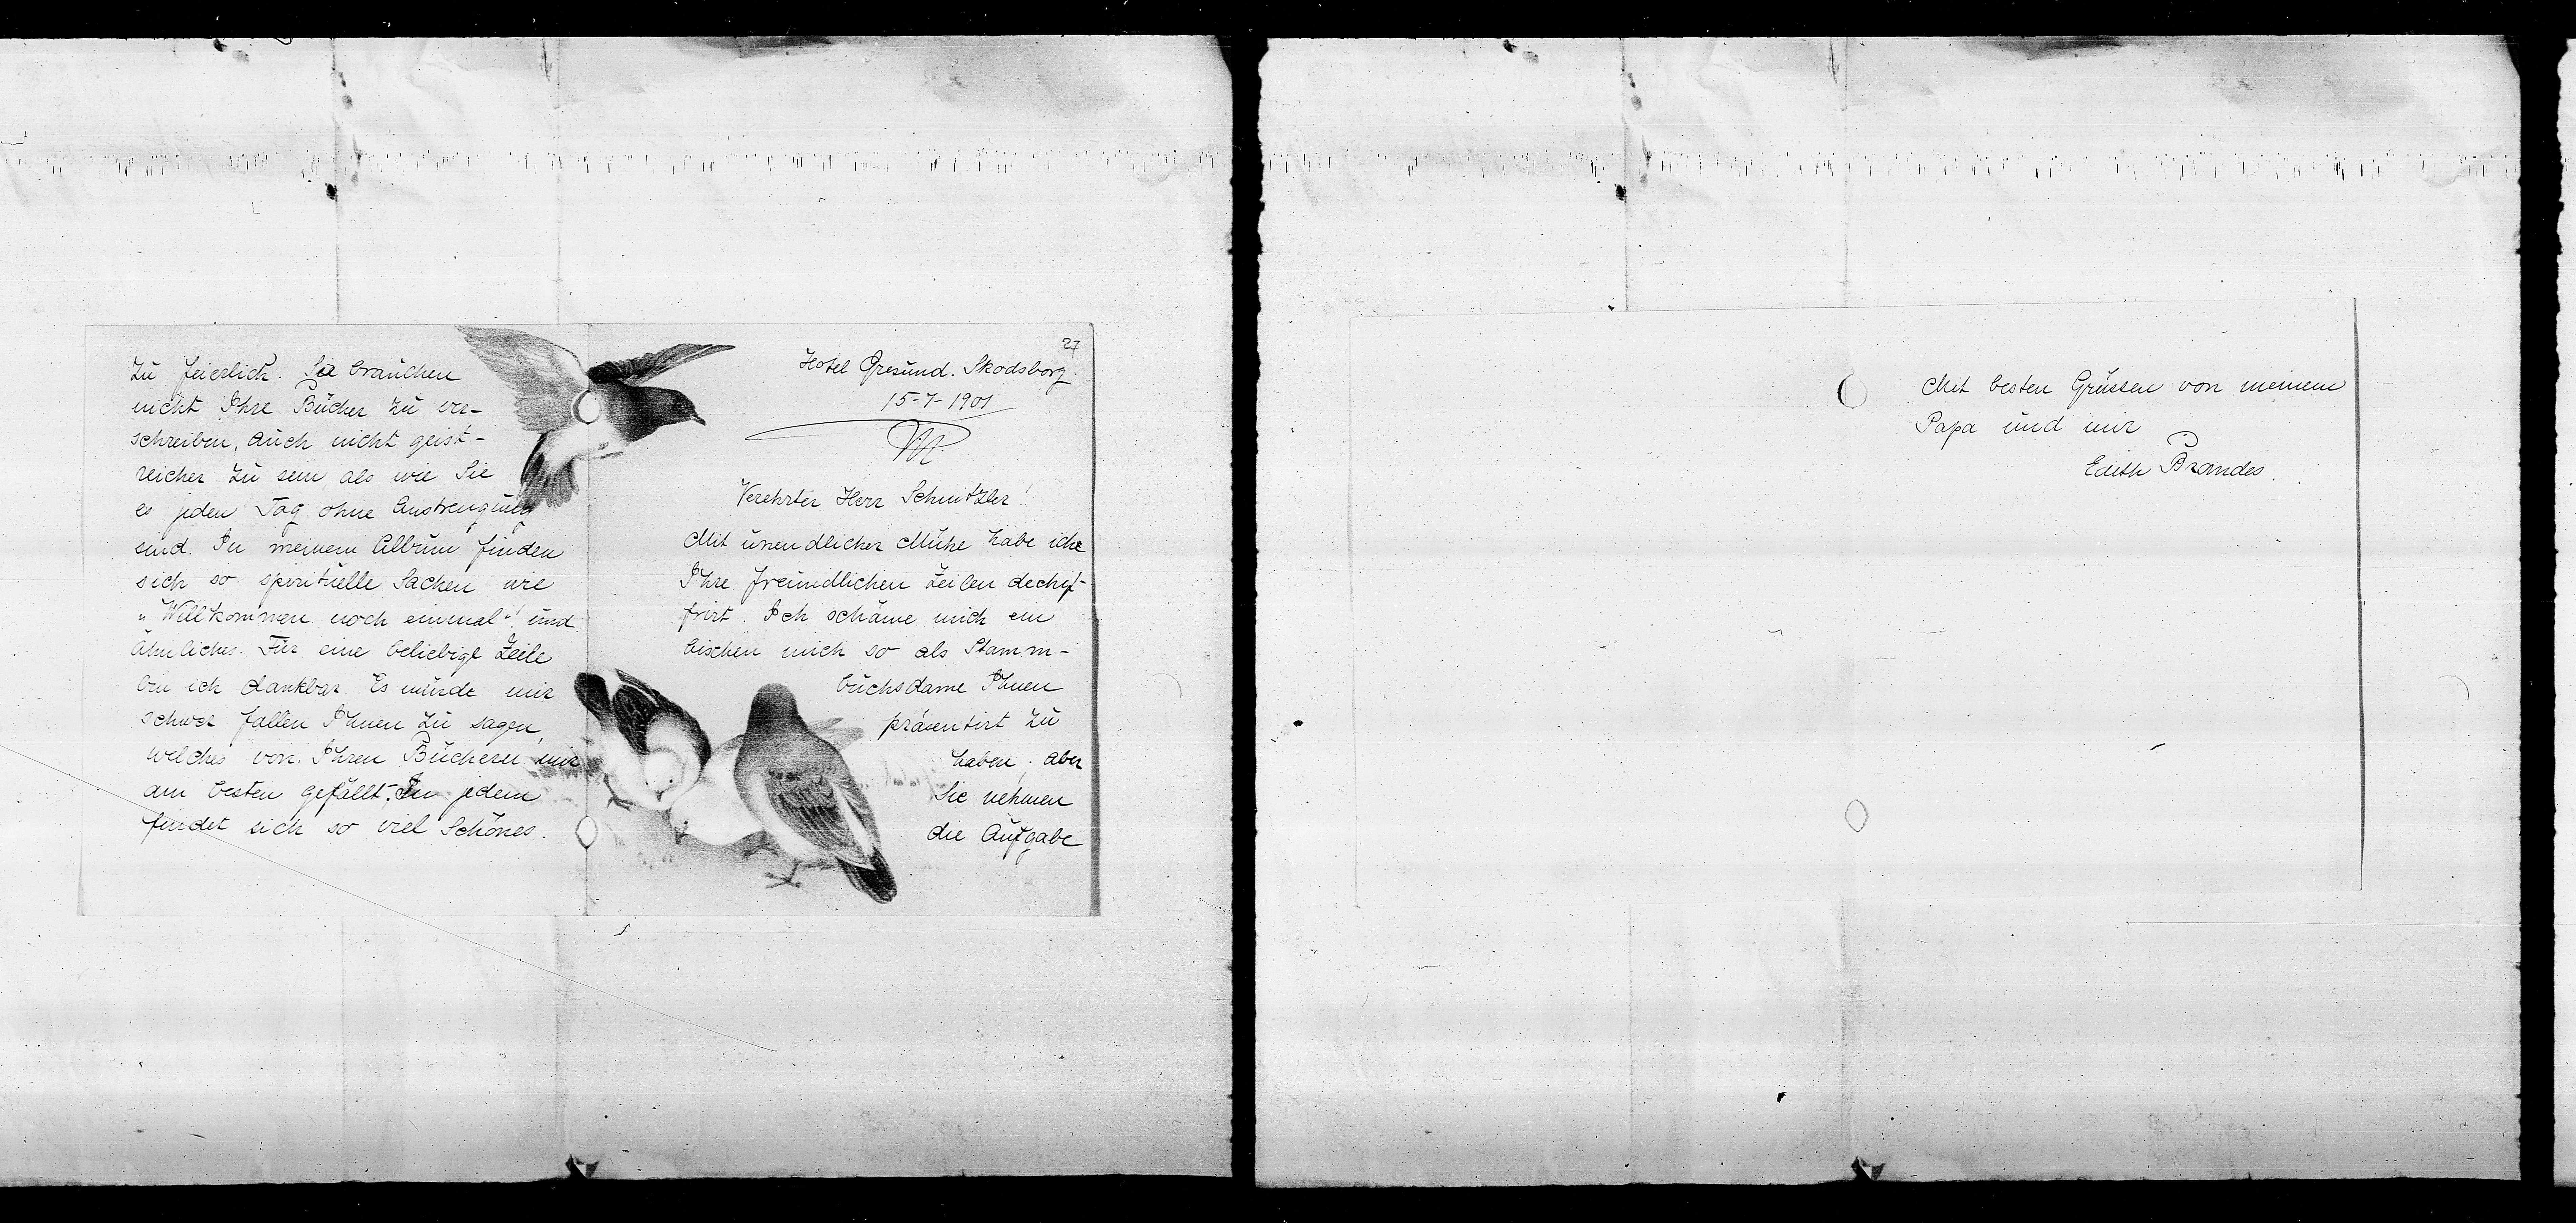 27
Hotel Øresund. Skodsborg.
15-7-1901
Verehrter Herr Schnitzler!
Mit unendlicher Mühe habe ich
Ihre freundlichen Zeilen dechif-
frirt. Ich schäme mich ein
bischen mich so als Stamm-
buchsdame Ihnen
präsentirt zu
haben; aber
Sie nehmen
die Aufgabe
zu feierlich. Sie brauchen
nicht Ihre Bücher zu ver-
schreiben, auch nicht geist-
reicher zu sein als wie Sie
es jeden Tag ohne Anstrengung
sind. In meinem Album finden
sich so spirituelle Sachen wie
„Willkommen noch einmal“! und
ähnliches. Für eine beliebige Zeile
bin ich dankbar. Es würde mir
schwer fallen Ihnen zu sagen,
welches von Ihren Büchern mir
am besten gefällt. In jedem
findet sich so viel Schönes.
Mit besten Grüssen von meinem
Papa und mir
Edith Brandes.